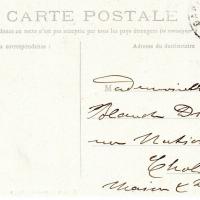 CARTE POSTALE
dance au recto n'est pas acceptée par tous les pays étrangers (Se renseigner
a correspondance Adresse du destinataire
Mademoiselle
Blanche D
rue Nation
Chol
Maine &